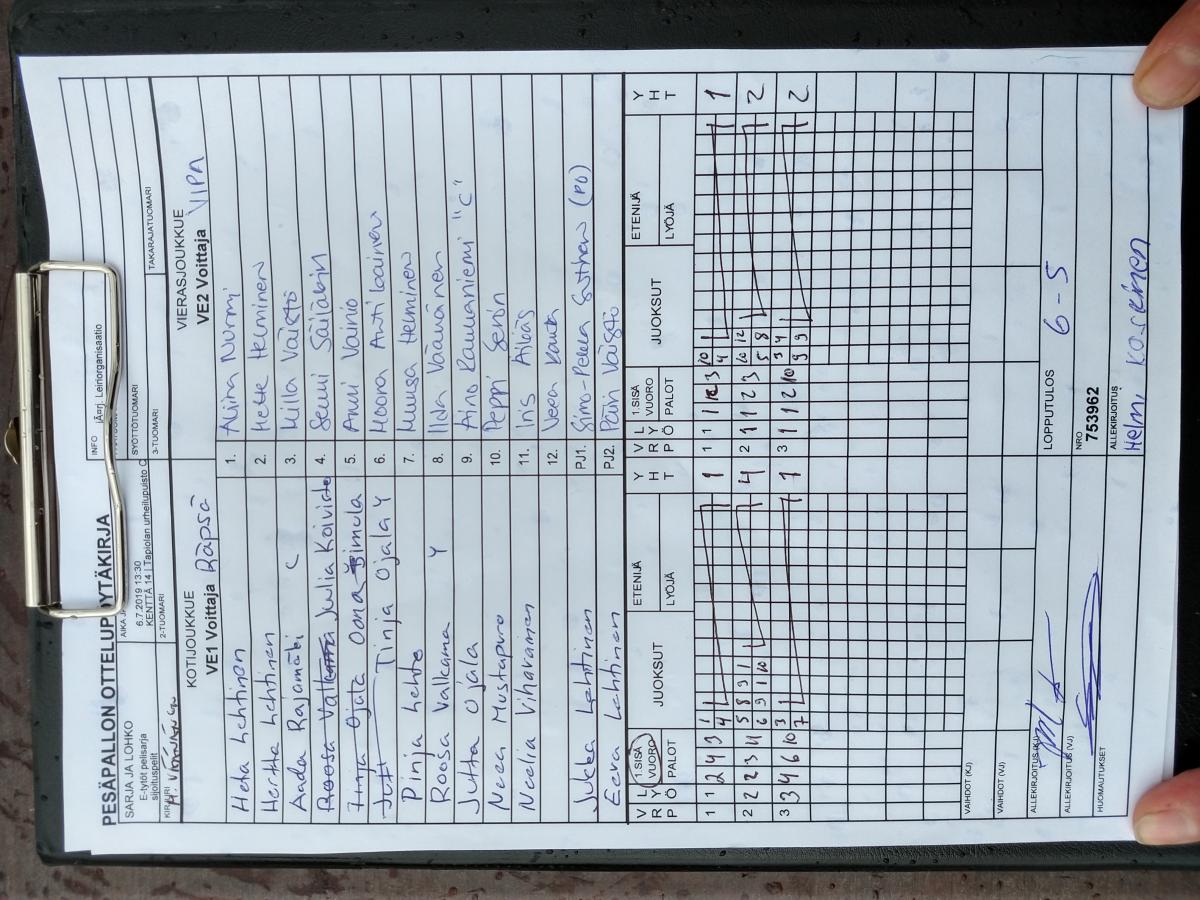 PESÄPALLON OTTELUPÖYTÄKIRJA
SARJA JA LOHKO
E-tytöt pelisarja
sijoituspelit
AIKA JA
6.7.2019 13:30
KENTTÄ 14 | Tapiolan urheilupuisto
INFO Jäerj. Leiriorganisaatio
KIRJURI
2-TUOMARI
SYÖTTÖTUOMARI
3-TUOMARI
TAKARAJATUOMARI
KOTIJOUKKUE
VE1 Voittaja Räpsä
VIERASJOUKKUE
VE2 Voittaja ViPa
Heta Lehtinen 1. Niina Nurmi
Hertta Lehtinen 2. Hette Helminen
Aada Rajamäki C 3. Milla Väistö
Julia Koiviste 4. Seemi
Oona Simula 5. Anni Vainio
Jutt Tinja Ojala Y 6. Noora
Pinja Lehto 7. Muusa Helminen
Roosa Valkama Y 8. Iida Väänänen
Jutta Ojala 9. Aino Raumaniemi "C"
Neea Mustapuro 10. Peppi
Neelia Vihavainen 11. Iris
12. Veera
Jukka Lehtinen PJ1. Simo-Pekka (PO)
Eeva Lehtinen PJ2. Päivi Väistö
V R P L Y Ö 1.SISÄ VUORO PALOT JUOKSUT ETENIJÄ LYÖJÄ Y H T
V R P L Y Ö 1.SISÄ VUORO PALOT JUOKSUT ETENIJÄ LYÖJÄ Y H T
1 1 2 4 3 1 4 1
2 2 2 3 11 5 8 3 1 6 9 1 10 4
3 3 4 6 10 3 1 7 1
1 1 1 3 10 4 1
2 1 1 2 3 10 12 5 8 2
3 1 1 2 10 3 4 9 9 2
VAIHDOT (KJ)
VAIHDOT (VJ)
ALLEKIRJOITUS (KJ)
LOPPUTULOS 6-5
ALLEKIRJOITUS (VJ)
NRO
753962
HUOMAUTUKSET
ALLEKIRJOITUS
Helmi Koskinen